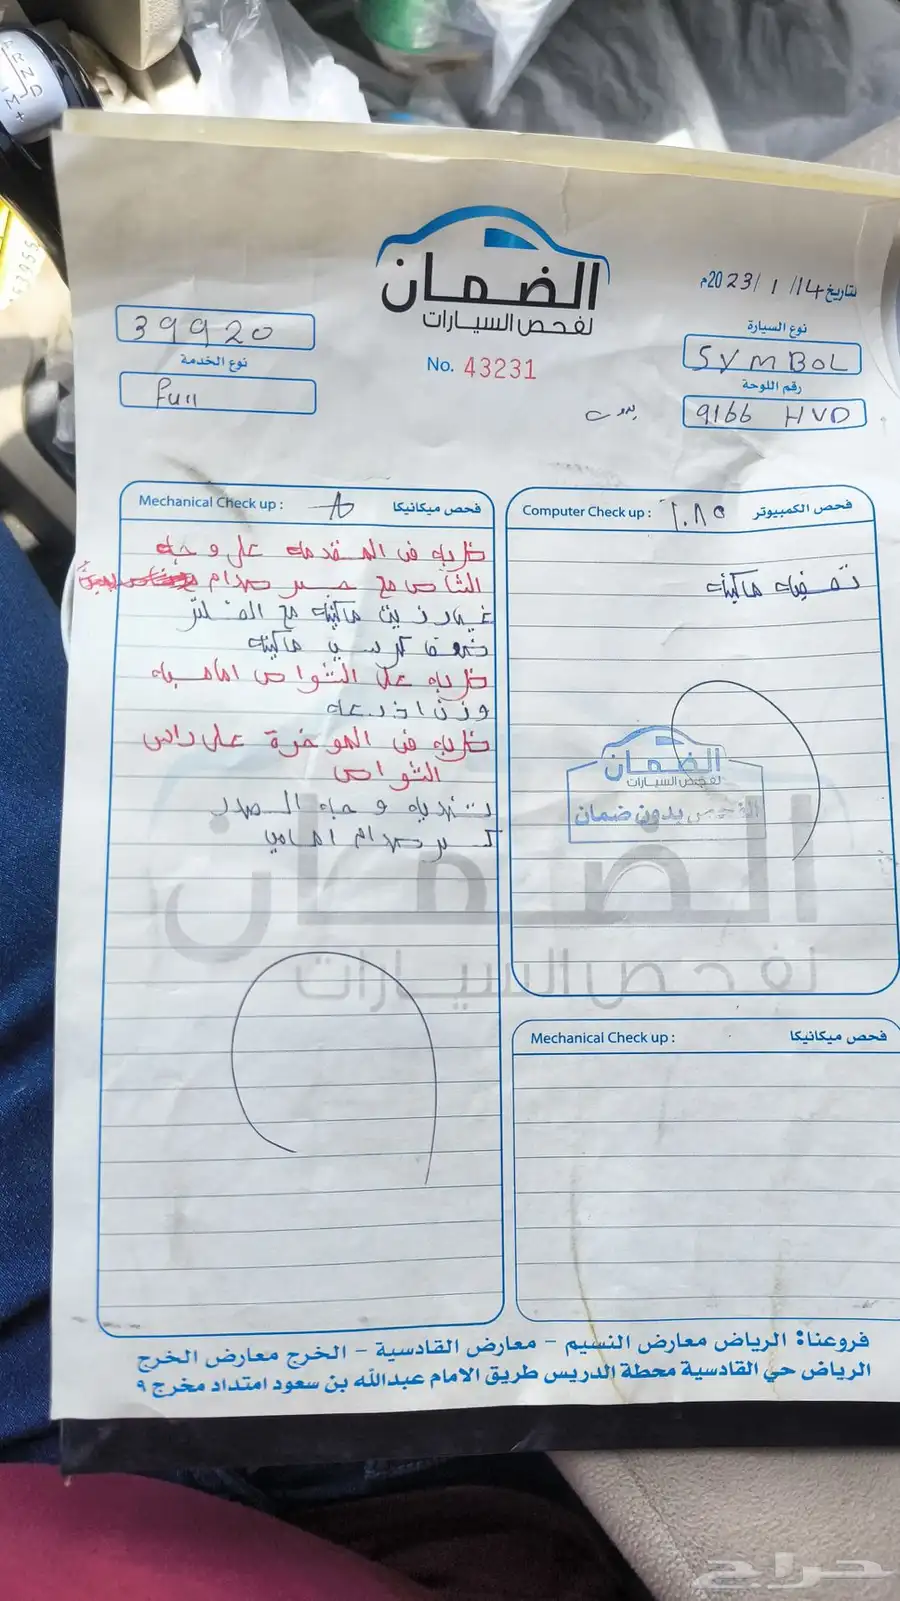 الضمان
لفحص السيارات
No. 43231
لتاريخ 14/ 1 /2023م
نوع السيارة
SYMBOL
رقم اللوحة
9166 HVD
بدون
39920
نوع الخدمة
Full
Mechanical Check up : فحص ميكانيكا
ضربه في المقدمه على وجه
الشاص مع جسر صدام
غيار زيت ماكينه مع الفلتر
كرسي ماكينه
ضربه على الشواص اماميه
وزن اذرعه
ضربه في الموخرة على راس
الشواص
تهريب وجه الصدر
كسر صدام امامي
Computer Check up : فحص الكمبيوتر
ماكينه
الضمان
لفحص السيارات
الفحص بدون ضمان
الضمان
لفحص السيارات
Mechanical Check up : فحص ميكانيكا
فروعنا: الرياض معارض النسيم - معارض القادسية - الخرج معارض الخرج
الرياض حي القادسية محطة الدريس طريق الامام عبدالله بن سعود امتداد مخرج ٩
حراج
P
R
N
D
M
+